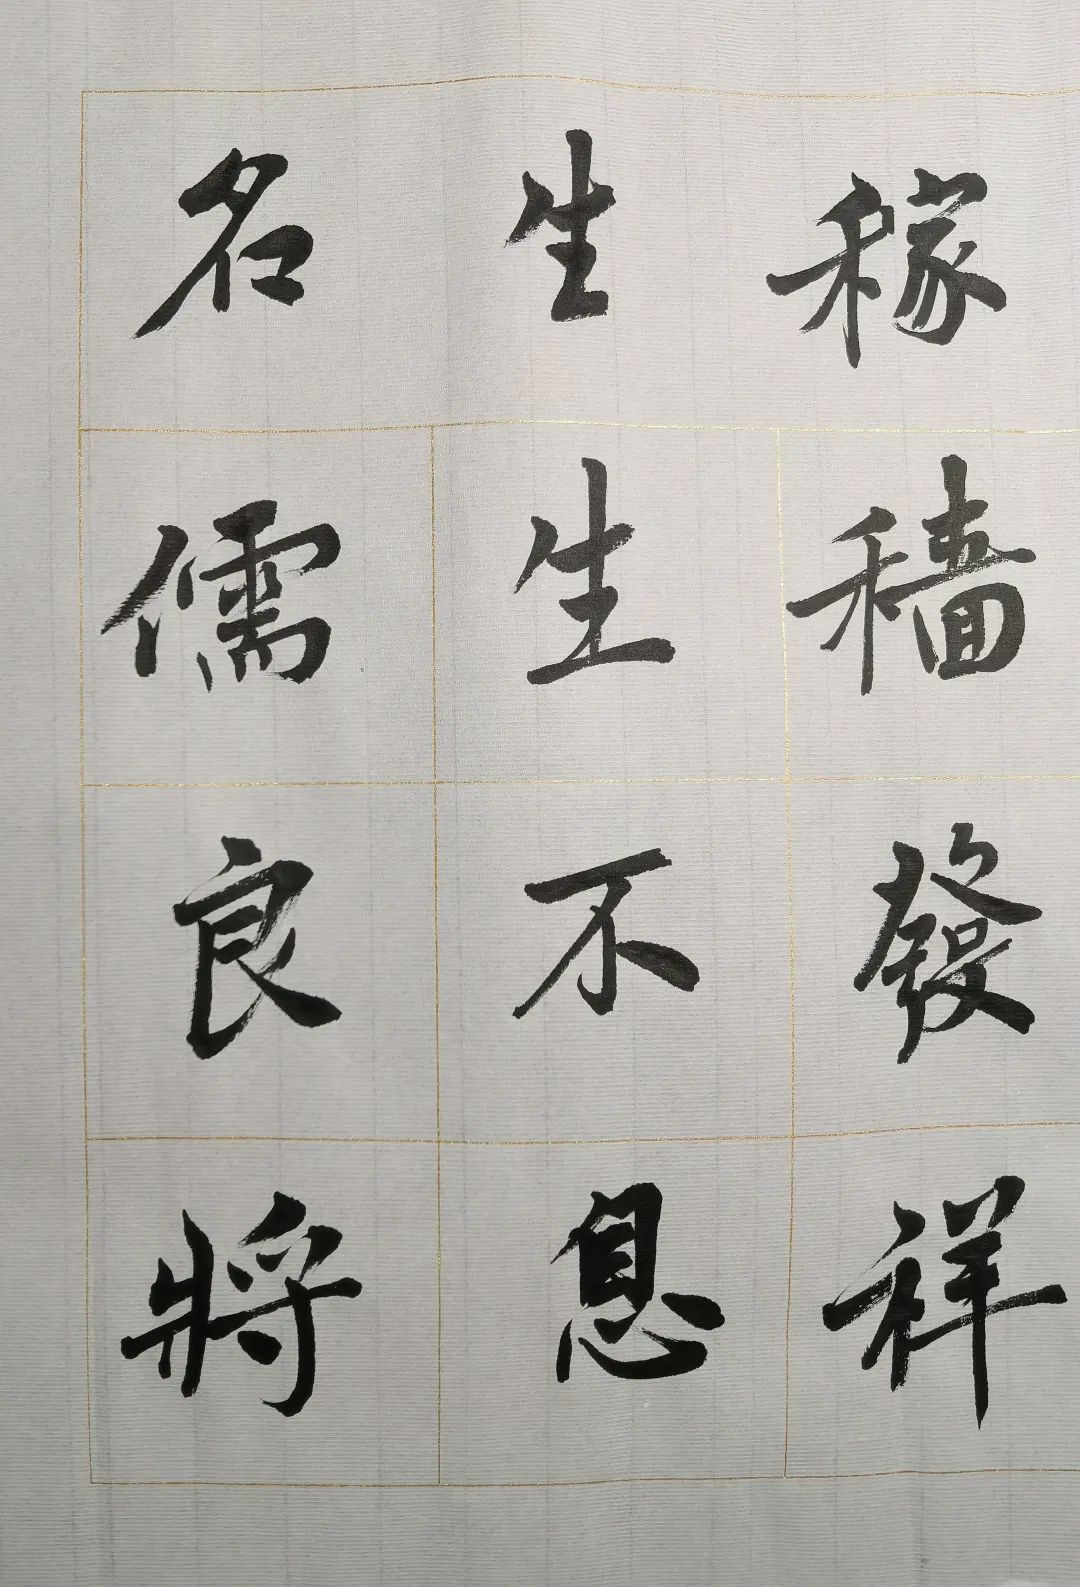 稼穡發祥
生生不息
名儒良將